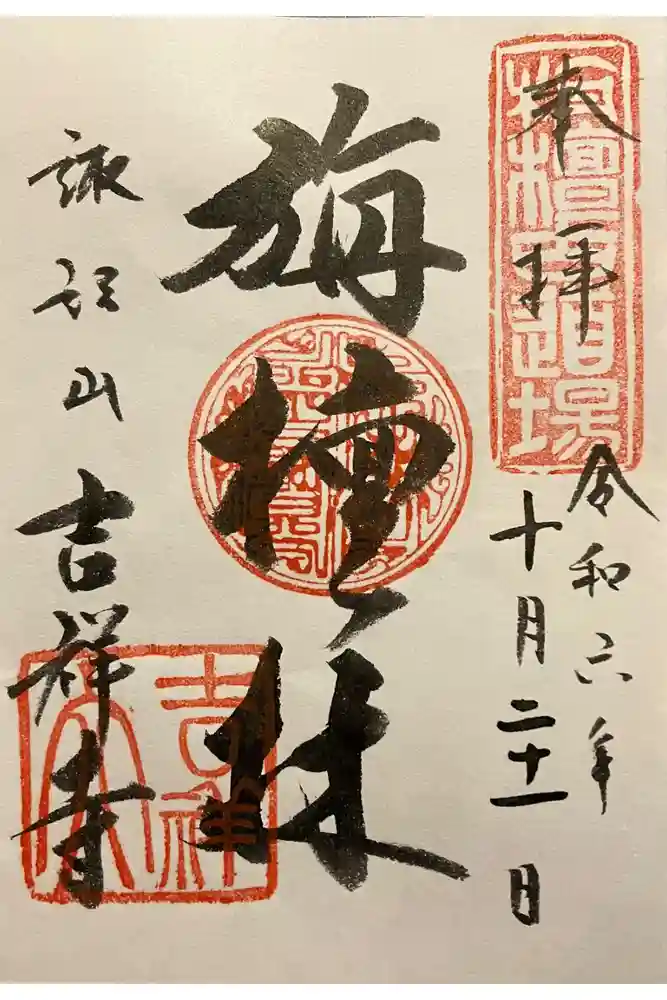 奉拝
令和六年
十月二十一日
旃檀林
諏訪山 吉祥寺
吉祥